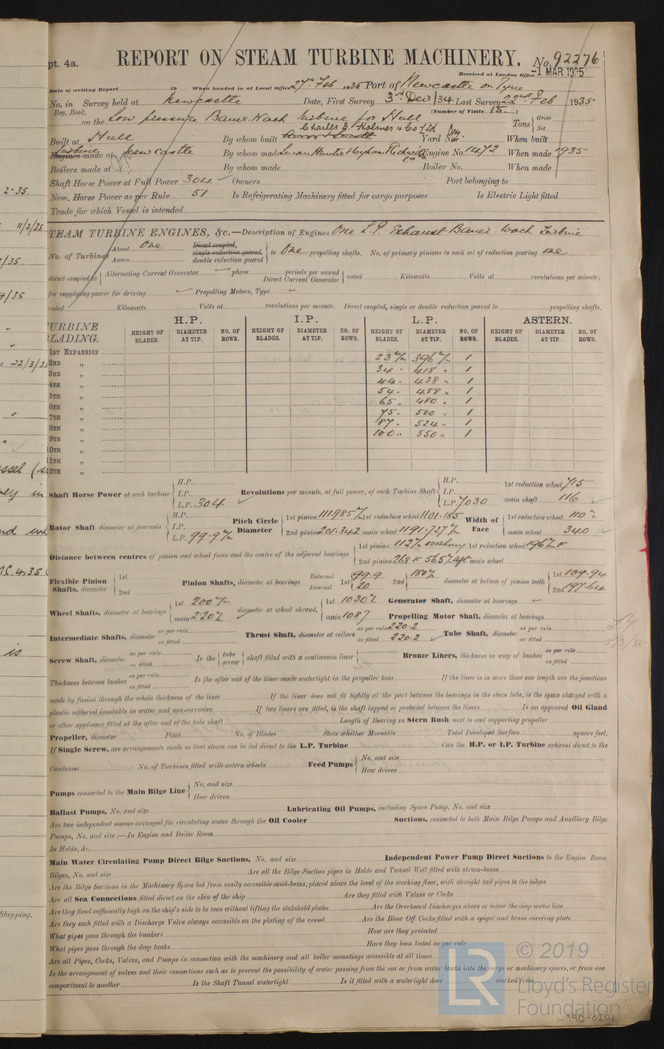 pt. 4a.
REPORT ON STEAM TURBINE MACHINERY. No. 92276
Received at London Office -1 MAR 1935
Date of writing Report 19 When handed in at Local Office 27th Feb 1935 Port of Newcastle on Tyne
No. in Survey held at Newcastle Date, First Survey 3rd Decr/34 Last Survey 22nd Feb 1935
Reg. Book. (Number of Visits 15)
on the Low pressure Bauer Wach Turbine for Hull Tons Gross Net
Built at Hull By whom built Charles D. Holmes & Co Ltd Yard No. When built
Engines made at Newcastle By whom made Swan Hunter & Wigham Richardson Engine No. 1472 When made 1935
Boilers made at By whom made Boiler No. When made
Shaft Horse Power at Full Power 304 Owners Port belonging to
Nom. Horse Power as per Rule 51 Is Refrigerating Machinery fitted for cargo purposes Is Electric Light fitted
Trade for which Vessel is intended
STEAM TURBINE ENGINES, &c.—Description of Engines One L.P. Exhaust Bauer Wach Turbine
No. of Turbines Ahead One Astern Direct coupled, single reduction geared double reduction geared to One propelling shafts. No. of primary pinions to each set of reduction gearing one
direct coupled to Alternating Current Generator phase periods per second Direct Current Generator rated Kilowatts Volts at revolutions per minute;
for supplying power for driving Propelling Motors, Type
rated Kilowatts Volts at revolutions per minute. Direct coupled, single or double reduction geared to propelling shafts.
TURBINE BLADING. H.P. I.P. L.P. ASTERN.
HEIGHT OF BLADES. DIAMETER AT TIP. NO. OF ROWS. HEIGHT OF BLADES. DIAMETER AT TIP. NO. OF ROWS. HEIGHT OF BLADES. DIAMETER AT TIP. NO. OF ROWS. HEIGHT OF BLADES. DIAMETER AT TIP. NO. OF ROWS.
1ST EXPANSION 23 m/m 396 m/m 1
2ND " 34 " 418 " 1
3RD " 44 " 438 " 1
4TH " 54 " 458 " 1
5TH " 65 " 480 " 1
6TH " 75 " 500 " 1
7TH " 87 " 524 " 1
8TH " 100 " 550 " 1
9TH "
10TH "
11TH "
12TH "
Shaft Horse Power at each turbine H.P. I.P. L.P. 304 Revolutions per minute, at full power, of each Turbine Shaft H.P. I.P. L.P. 7030 1st reduction wheel 715 main shaft 116
Rotor Shaft diameter at journals H.P. I.P. L.P. 99.9 m/m Pitch Circle Diameter 1st pinion 111.985 1st reduction wheel 1101.185 2nd pinion 201.342 main wheel 1191.727 Width of Face 1st reduction wheel 110 main wheel 340
Distance between centres of pinion and wheel faces and the centre of the adjacent bearings 1st pinion 1st reduction wheel 2nd pinion main wheel
Flexible Pinion Shafts, diameter 1st 2nd Pinion Shafts, diameter at bearings External 1st 99.9 Internal 1st 20 2nd 180 diameter at bottom of pinion teeth 1st 109.94 2nd 197.64
Wheel Shafts, diameter at bearings 1st 200 main 220 diameter at wheel shroud, 1st 1030 main 1087 Generator Shaft, diameter at bearings
Propelling Motor Shaft, diameter at bearings
Intermediate Shafts, diameter as per rule as fitted Thrust Shaft, diameter at collars as per rule 220.2 as fitted 220.2 Tube Shaft, diameter as per rule as fitted
Screw Shaft, diameter as per rule as fitted Is the tube screw shaft fitted with a continuous liner Bronze Liners, thickness in way of bushes as per rule as fitted
Thickness between bushes as per rule as fitted Is the after end of the liner made watertight in the propeller boss If the liner is in more than one length are the junctions
made by fusion through the whole thickness of the liner If the liner does not fit tightly at the part between the bearings in the stern tube, is the space charged with a
plastic material insoluble in water and non-corrosive If two liners are fitted, is the shaft lapped or protected between the liners Is an approved Oil Gland
or other appliance fitted at the after end of the tube shaft Length of Bearing in Stern Bush next to and supporting propeller
Propeller, diameter Pitch No. of Blades State whether Moveable Total Developed Surface square feet.
If Single Screw, are arrangements made so that steam can be led direct to the L.P. Turbine Can the H.P. or I.P. Turbine exhaust direct to the
Condenser No. of Turbines fitted with astern wheels Feed Pumps No. and size How driven
Pumps connected to the Main Bilge Line No. and size How driven
Ballast Pumps, No. and size Lubricating Oil Pumps, including Spare Pump, No. and size
Are two independent means arranged for circulating water through the Oil Cooler Suctions, connected to both Main Bilge Pumps and Auxiliary Bilge
Pumps, No. and size:—In Engine and Boiler Room
In Holds, &c.
Main Water Circulating Pump Direct Bilge Suctions, No. and size Independent Power Pump Direct Suctions to the Engine Room
Bilges, No. and size Are all the Bilge Suction pipes in Holds and Tunnel Well fitted with strum-boxes
Are the Bilge Suctions in the Machinery Space led from easily accessible mud-boxes, placed above the level of the working floor, with straight tail pipes to the bilges
Are all Sea Connections fitted direct on the skin of the ship Are they fitted with Valves or Cocks
Are they fixed sufficiently high on the ship's side to be seen without lifting the stokehold plates Are the Overboard Discharges above or below the deep water line
Are they each fitted with a Discharge Valve always accessible on the plating of the vessel Are the Blow Off Cocks fitted with a spigot and brass covering plate
What pipes pass through the bunkers How are they protected
What pipes pass through the deep tanks Have they been tested as per rule
Are all Pipes, Cocks, Valves, and Pumps in connection with the machinery and all boiler mountings accessible at all times
Is the arrangement of valves and their connections such as to prevent the possibility of water passing from the sea or from water tanks into the cargo or machinery spaces, or from one
compartment to another Is the Shaft Tunnel watertight Is it fitted with a watertight door worked from
Shipping.
© 2019
LR
Lloyd's Register
Foundation